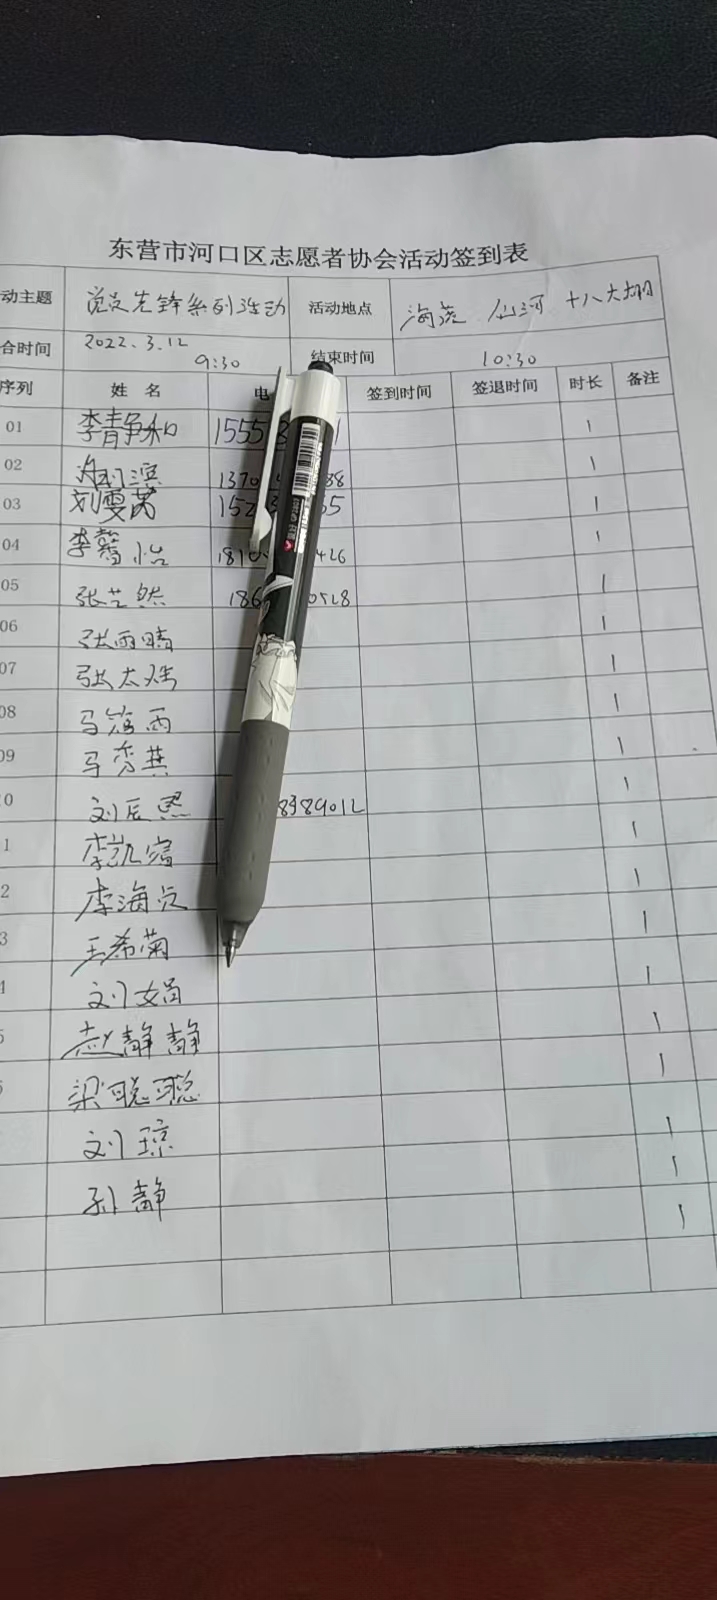 东营市河口区志愿者协会活动签到表
动主题 党员先锋系列活动 活动地点 海蓝 仙河 十八大棚
合时间 2022.3.12 9:30 结束时间 10:30
序列 姓名 电 签到时间 签退时间 时长 备注
01 李静和 1555 1 1
02 滨 1370 38 1
03 刘雯茜 152 35 1
04 李馨怡 1810 426 1
05 张芸然 186 0528 1
06 张雨晴 1
07 张太 1
08 马 西 1
09 马秀英 1
0 刘辰恩 8989012 1
1 李凯 1
2 李海贞 1
3 王希菊 1
4 刘娟 1
5 赵静静 1
6 梁聪聪 1
刘琼 1
孙静 1
1